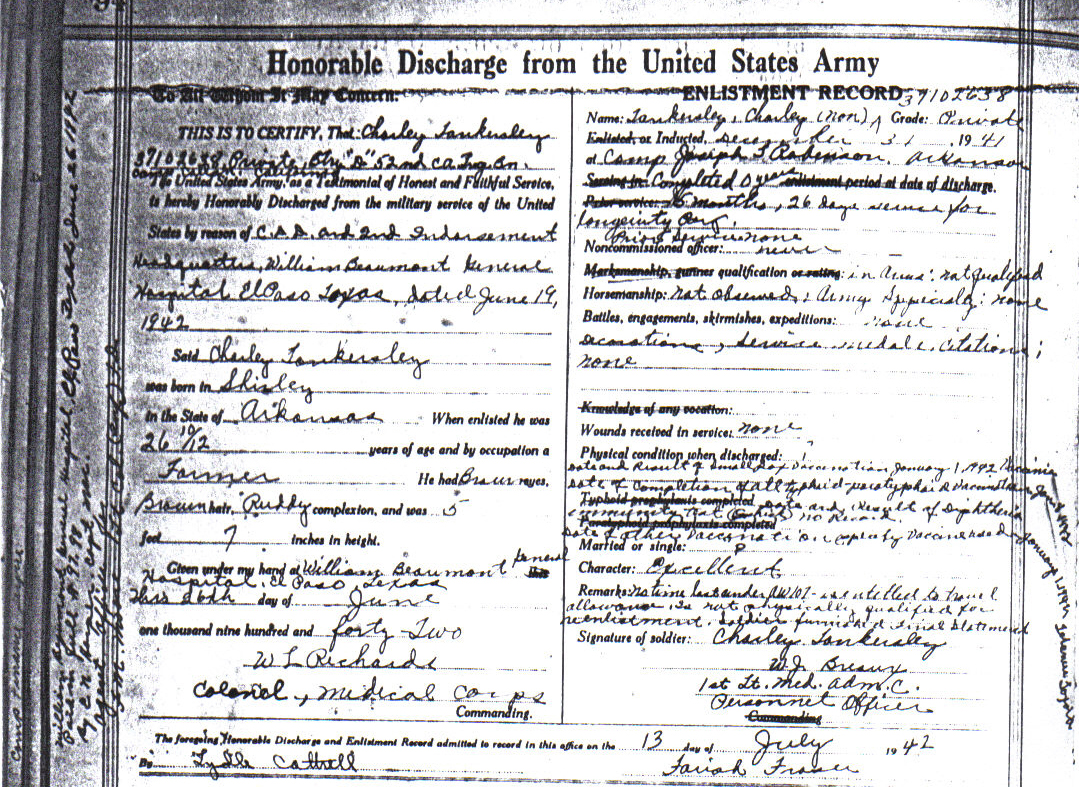 Honorable Discharge from the United States Army
To All Whom It May Concern:
THIS IS TO CERTIFY, That Charley Tankersley
37102638, Private, Btry "D" 52nd CA Trg. Bn.
Camp Callan, California
The United States Army, as a Testimonial of Honest and Faithful Service,
is hereby Honorably Discharged from the military service of the United
States by reason of C.D.D. and 2nd Indorsement
Headquarters, William Beaumont General
Hospital El Paso Texas, dated June 19,
1942
Said Charley Tankersley
was born in Shirley
in the State of Arkansas When enlisted he was
26 10/12 years of age and by occupation a
Farmer He had Brown eyes,
Brown hair, Ruddy complexion, and was 5
feet 7 inches in height.
Given under my hand at William Beaumont General
Hospital, El Paso Texas
This 26th day of June
one thousand nine hundred and forty Two
W L Richards
Colonel, Medical Corps
Commanding.
ENLISTMENT RECORD 37102638
Name: Tankersley, Charley (non) Grade: Private
Enlisted, or Inducted, December 31, 1941
at Camp Joseph T Robinson, Arkansas
Serving in: Completed 0 years enlistment period at date of discharge.
Prior service: months, 26 days service for
longevity
Prior Service none
Noncommissioned officer: never
Marksmanship, gunner qualification or rating: in Arms: not qualified
Horsemanship: not observed; Army Specialty: none
Battles, engagements, skirmishes, expeditions: none
Decorations, Service medals, Citations;
none
Knowledge of any vocation:
Wounds received in service: none
Physical condition when discharged:
Date and Result of Small Pox Vaccination January 1, 1942
Date of Completion of all typhoid-paratyphoid Vaccination
Typhoid prophylaxis completed Date and Result of Diphtheria
immunity Test no Record.
Paratyphoid prophylaxis completed
Date of other Vaccination (specify Vaccine used
Married or single:
Character: Excellent
Remarks: No time lost under AW 107 - is entitled to travel
allowance is not physically qualified for
reenlistment. Soldier furnished Final Statement
Signature of soldier: Charley Tankersley
W. J. Breaux
1st Lt. Med. Adm. C.
Personnel Officer
Commanding
The foregoing Honorable Discharge and Enlistment Record admitted to record in this office on the 13 day of July 1942
By Lytle Cottrell
Fraser